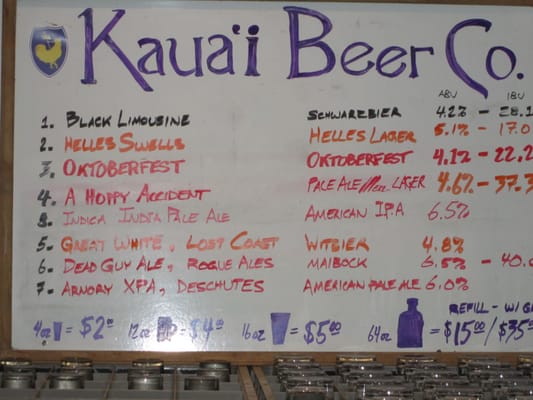 Kaua'i Beer Co.
ABV IBU
1. BLACK LIMOUSINE SCHWARZBIER 4.2% - 28.1
2. HELLES SWELLS HELLES LAGER 5.1% - 17.0
3. OKTOBERFEST OKTOBERFEST 4.12 - 22.2
4. A HOPPY ACCIDENT PALE ALE LAGER 4.6% - 37.3
INDICA INDIA PALE ALE AMERICAN I.P.A 6.5%
5. GREAT WHITE, LOST COAST WITBIER 4.8%
6. DEAD GUY ALE, ROGUE ALES MAIBOCK 6.5% - 40.0
7. ARMORY XPA, DESCHUTES AMERICAN PALE ALE 6.0%
REFILL - W/G
4oz = $2.00 12oz = $4.00 16oz = $5.00 64oz = $15.00/$35.00